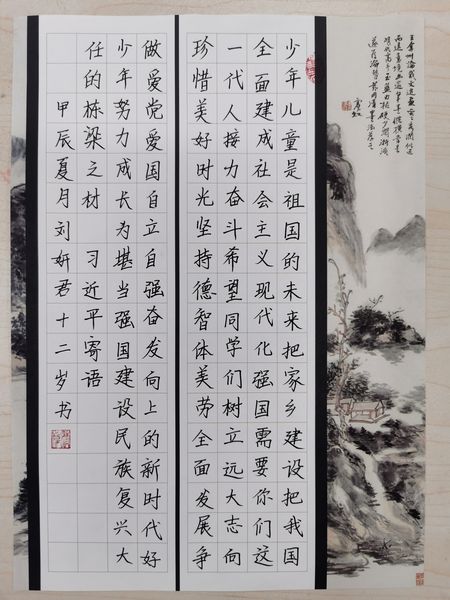 少年儿童是祖国的未来把家乡建设把我国
全面建成社会主义现代化强国需要你们这
一代人接力奋斗希望同学们树立远大志向
珍惜美好时光坚持德智体美劳全面发展争
做爱党爱国自立自强奋发向上的新时代好
少年努力成长为堪当强国建设民族复兴大
任的栋梁之材 习近平寄语
甲辰夏月刘妍君十二岁书